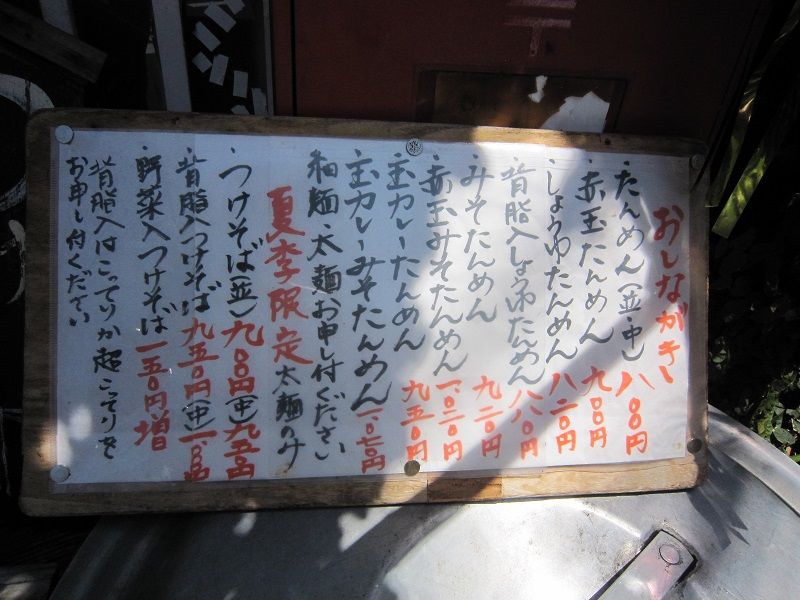 おしながき
・たんめん(並・中) 八〇〇円
・赤玉たんめん 九〇〇円
・しょうゆたんめん 八二〇円
・背脂入しょうゆたんめん 八八〇円
・みそたんめん 九二〇円
・赤玉みそたんめん 一、〇二〇円
・玉カレーたんめん 九五〇円
・玉カレーみそたんめん 一、〇七〇円
細麺・太麺お申し付ください
夏季限定 太麺のみ
・つけそば(並)九〇〇円(中)九五〇円
・背脂入つけそば九五〇円(中)一、〇〇〇円
・野菜入つけそば一五〇円増
背脂入はこってりか超こってりを
お申し付ください